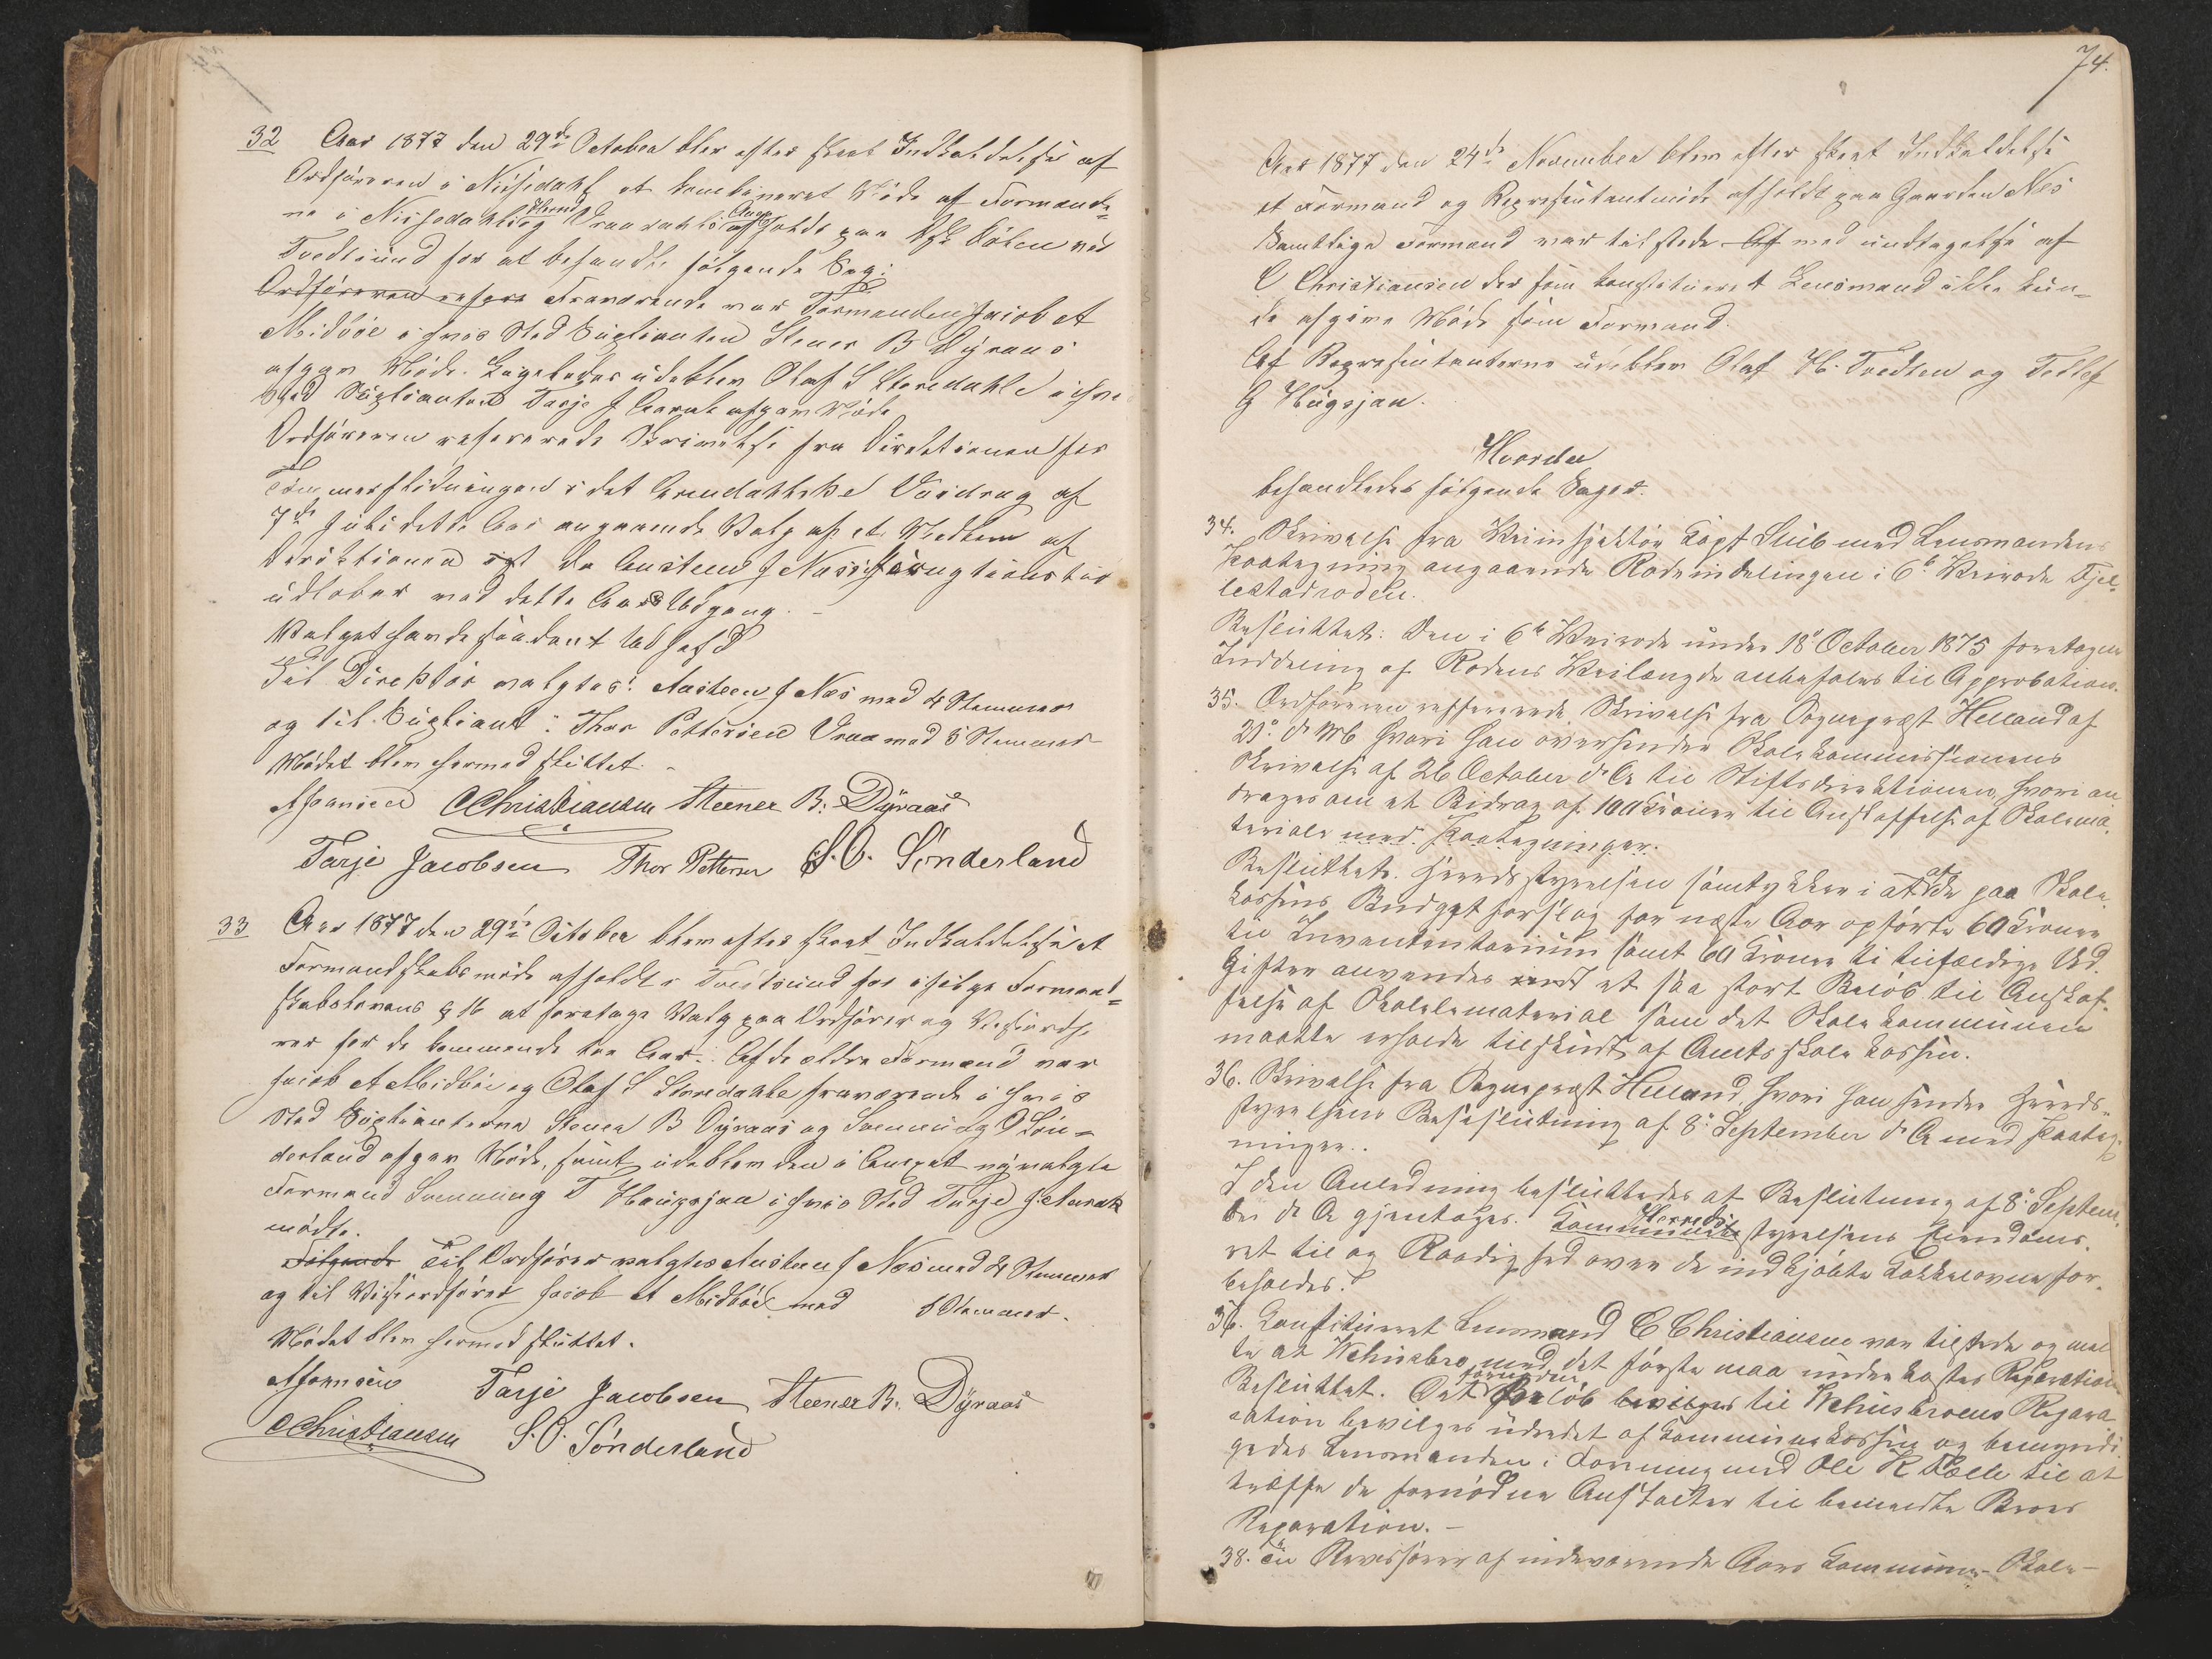 32 Aar 1877 den 29de October blev efter skeet Indkaldelse af
Ordføreren i Nissedahl et kombineret Møde af Formænde=
ne i Nissedahls Herred og Vraadahls Annex afholdt paa Dsk Bølen ved
Tvedtsund for at behandle følgende Sag:
Ordføreren refere Fraværende var Formanden Jacob A
Midbøe i hvis Sted Supleanten Stener B Dyraas
afgav Møde. Ligeledes udeblev Olaf S Storedahle i hvis
Sted Supleanten Tarje J Aarak afgav Møde
Ordføreren refererede Skrivelse fra Direktionen for
Tømmerflødningen i det Arendahlske Vasdrag af
7de Juli dette Aar angaaende Valg af et Medlem af
Direktionen da Austeen J Næs's Funktionstid
udløber ved dette Aars Udgang.
Valget havde saadant Udfald
Til Direktør valgtes: Austeen J Næs med 4 Stemmer
og til Supleant: Thor Pettersen Vraa med 5 Stemmer
Mødet blev hermed sluttet.
CChristiansen Steener B. Dÿraas
Tarje Jacobsen Thor Petterse S. O. Sønderland
33 Aar 1877 den 29de October blev efter skeet Indkaldelse et
Formandskabsmøde afholdt i Tveitsund for ifølge Formand=
skabslovens § 16 at foretage Valg paa Ordfører og Viceordfø
rer for de kommende to Aar. Af de ældre Formænd var
Jacob A Midbøe og Olaf S Storedahle fraværende i hvis
Sted Supleanterne Stener B Dyraas og Svenning O Søn=
derland afgav Møde, samt udeblev den i Annexet nyvalgte
Formand Svenning T Haugsjaa i hvis Sted Tarje J. Aarak
mødte.
Følgende Til Ordfører valgtes Austeen J Næs med 4 Stemmer
og til Viceordfører Jacob A Midbøe med 5 Stemmer.
Mødet blev hermed sluttet.
Tarje Jacobsen Steener B. Dÿraas
CChristiansen S. O. Sønderland
74.
Aar 1877 den 24de November blev efter skeet Indkaldelse
et Formand og Representantmøde afholdt paa Gaarden Nes
Samtlige Formænd var tilstede Af med undtagelse af
C Christiansen der som konstitueret Lensmand ikke kun=
de afgive Møde som Formand.
Af Representanterne udeblev Olaf H. Tvedten og Tellef
G Hugsjaa.
Hvorder
behandledes følgende Sager.
34. Skrivelse fra Veiinspektør Kapt Stub med Lensmandens
Paategning angaaende Rodeindelingen i 6te Veirode Fjel-
lestadroden.
Besluttet: Den i 6te Veirode under 18de October 1875 foretagne
Inddeling af Rodens Veilængde anbefales til Approbation.
35. Ordføreren reffererede Skrivelse fra Sogneprest Helland af
21de d Mb hvori han oversender Skolekommissionens
Skrivelse af 26 October d. A til Stiftsdirektionen, hvori an
drages om et Bidrag af 100 Kroner til Anskaffelse af Skolema-
teriale med Paategninger.
Besluttet. Heredsstyrelsen samtykker i at af de paa Skole-
kassens Budgetforslag for næste Aar opførte 60 Kroner
til Inventarium samt 60 Kroner til tilfældige Ud-
gifter anvendes et saa stort Beløb til Anskaf-
felse af Skolelemateriel som det Skolekommunen
maatte erholde tilskudt af Amtsskolekassen.
36. Skrivelse fra Sogneprest Helland, hvori han sender Hereds-
styrelsens Beslutning af 8de September d A med Paateg-
ninger.
I den Anledning besluttedes at Beslutning af 8de Septem-
ber d. A gjentages. Kommune Herreds styrelsens Eiendoms-
ret til og Raadighed over de indkjøbte Kakkelovne for-
beholdes.
36. Konstitueret Lensmand C Christiansen var tilstede og mel
te at Wehusbro med det første maa underkastes Reparation
Besluttet. Det fornødne Beløb bevilges til Wehusbroens Repara
ration bevilges udredet af Kommunekassen og bemyndi
gedes Lensmanden i Forening med Ole K Tvedt til at
træffe de fornødne Anstalter til bemeldte Broes
Reparation.
38. Til Revisører af indeværende Aars Kommune- Skole-